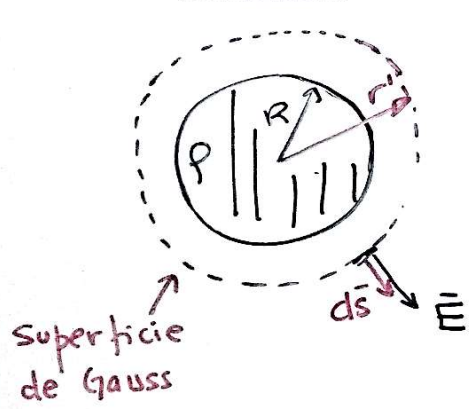 ρ
R
r
ds̄
Ē
Superficie
de Gauss